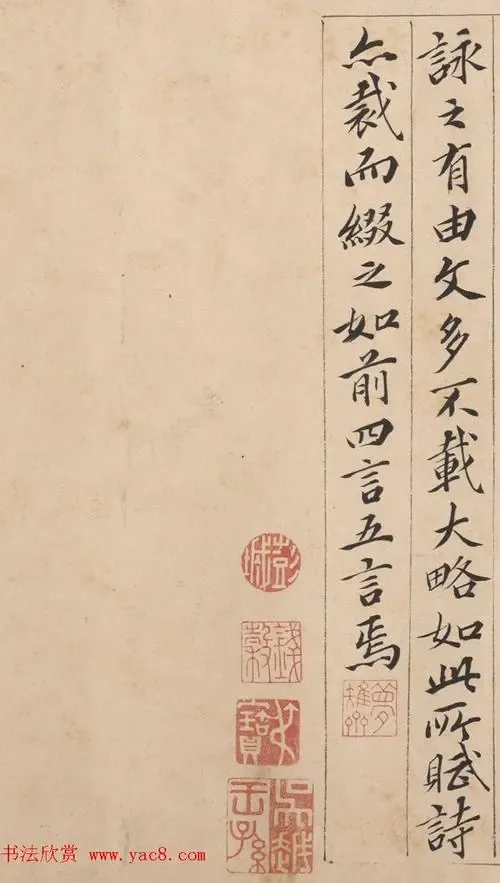 詠之有由文多不載大略如此所賦詩
亦裁而綴之如前四言五言焉
彭城
錢榖
吳越王孫
书法欣赏 www.yac8.com